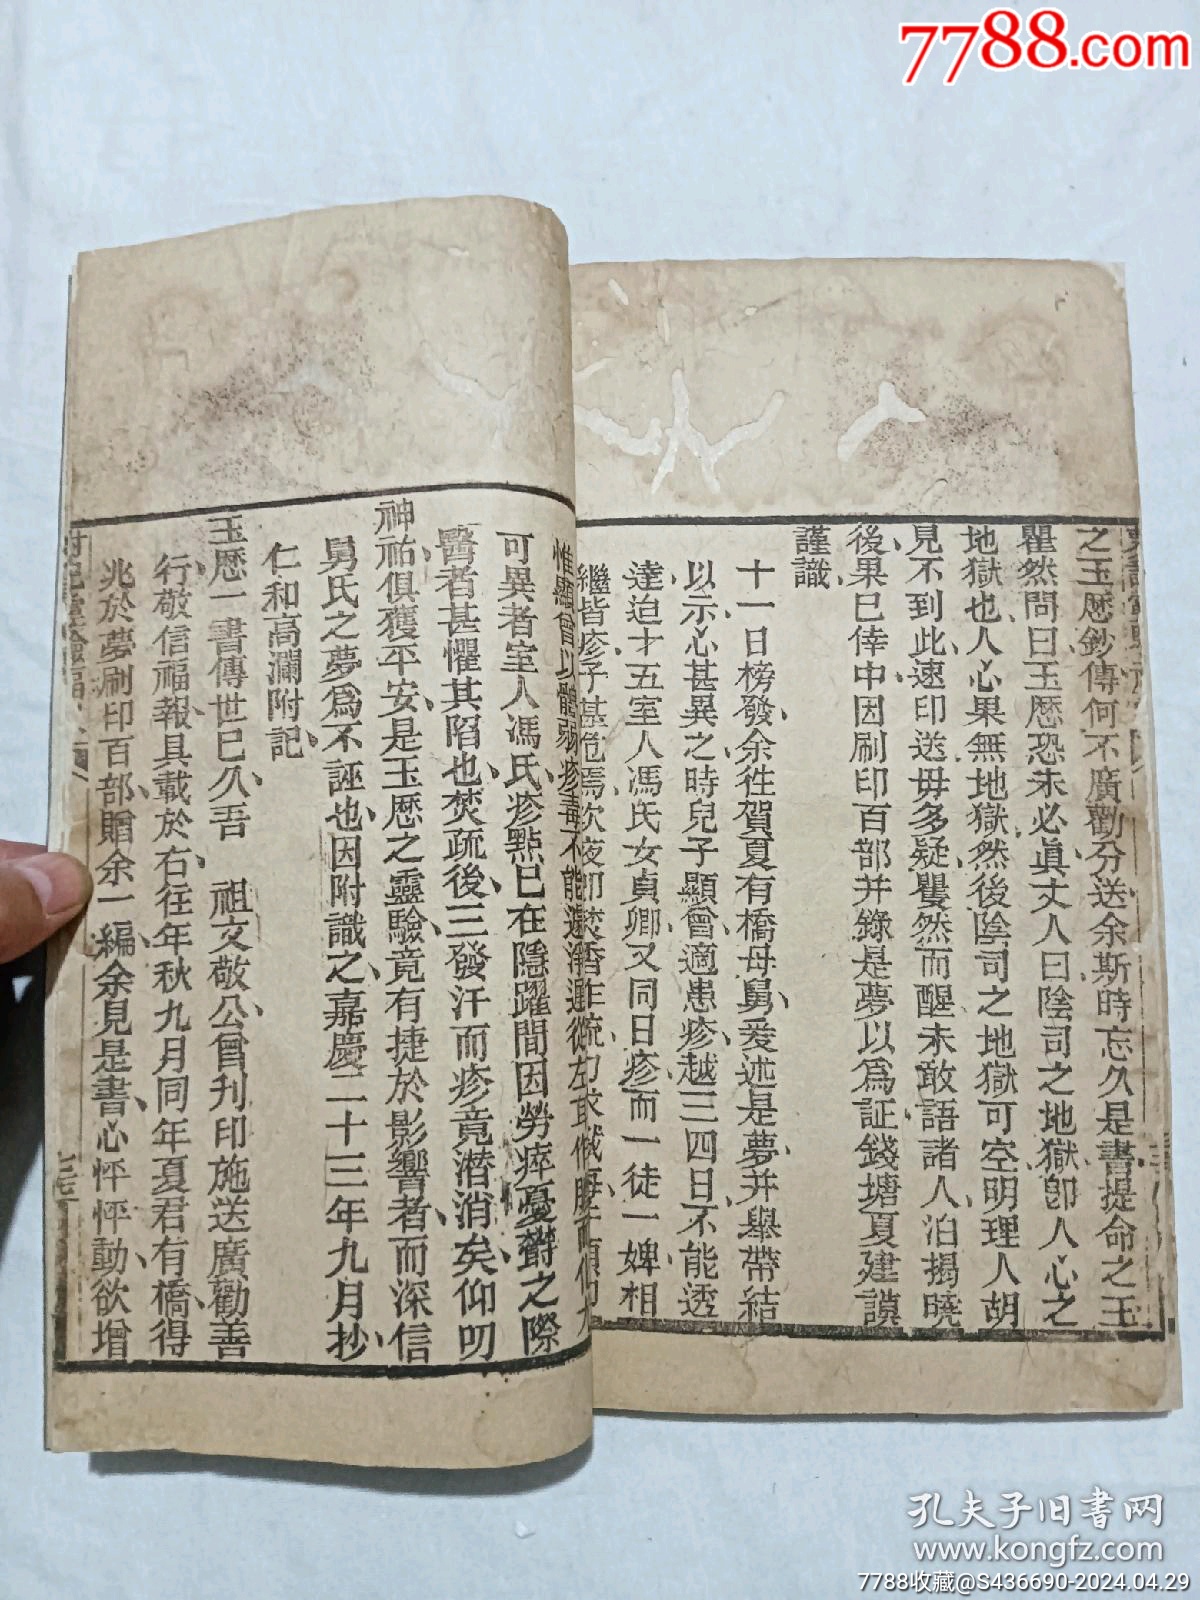 7788.com
之玉厯鈔傳何不廣勸分送余斯時忘久是書提命之玉
瞿然問曰玉厯恐未必眞丈人曰陰司之地獄卽人心之
地獄也人心果無地獄然後陰司之地獄可空明理人胡
見不到此速印送毋多疑瞿然而醒未敢語諸人泊揭曉
後果已倖中因刷印百部并錄是夢以爲証錢塘夏建謨
謹識
十一日榜發余徃賀夏有橋母舅爰述是夢并舉帶結
以示心甚異之時兒子顯曾適患疹越三四日不能透
達迫才五室人馮氏女貞卿又同日疹而一徒一婢相
繼皆疹子甚危焉次夜卽焚香作疏力求懺悔
惟顯曾以體弱疹毒不能透淨遲從左耳
可異者室人馮氏疹㸃已在隱躍間因勞瘁憂欝之際
醫者甚懼其陷也焚疏後三發汗而疹竟潛消矣仰叨
神祐俱獲平安是玉厯之靈驗竟有捷於影響者而深信
舅氏之夢爲不誣也因附識之嘉慶二十三年九月抄
仁和高瀾附記
玉厯一書傳世已久吾 祖文敬公曾刋印施送廣勸善
行敬信福報具載於右往年秋九月同年夏君有橋得
兆於夢刷印百部贈余一編余見是書心怦怦動欲增
孔夫子旧书网
www.kongfz.com
7788收藏@S436690-2024.04.29